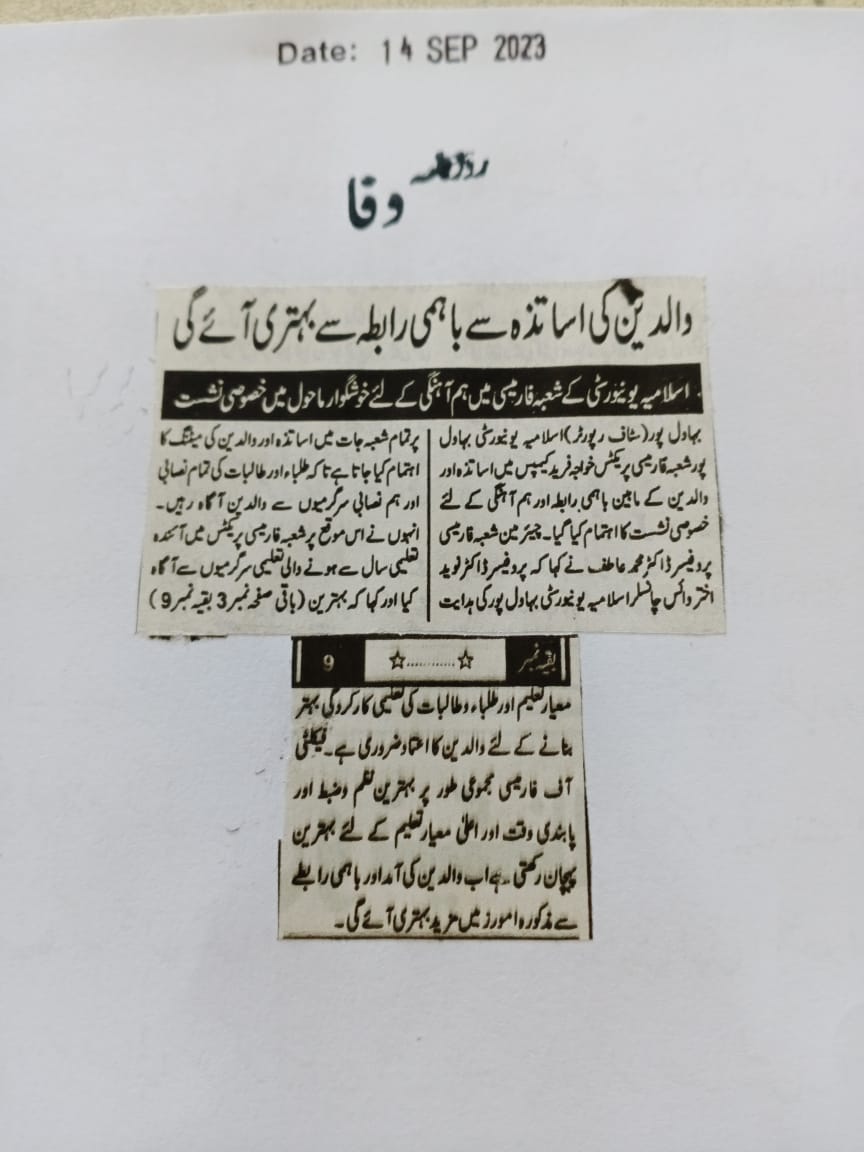 Date: 14 SEP 2023
روزنامہ
وفا
والدین کی اساتذہ سے باہمی رابطہ سے بہتری آئے گی
اسلامیہ یونیورسٹی کے شعبہ فارمیسی میں ہم آہنگی کے لئے خوشگوار ماحول میں خصوصی نشست
بہاول پور (سٹاف رپورٹر) اسلامیہ یونیورسٹی بہاول
پور شعبہ فارمیسی پریکٹس خواجہ فرید کیمپس میں اساتذہ اور
والدین کے مابین باہمی رابطہ اور ہم آہنگی کے لئے
خصوصی نشست کا اہتمام کیا گیا۔ چیئرمین شعبہ فارمیسی
پروفیسر ڈاکٹر محمد عاطف نے کہا کہ پروفیسر ڈاکٹر نوید
اختر وائس چانسلر اسلامیہ یونیورسٹی بہاول پور کی ہدایت
پر تمام شعبہ جات میں اساتذہ اور والدین کی میٹنگ کا
اہتمام کیا جاتا ہے تاکہ طلباء اور طالبات کی تمام نصابی
اور ہم نصابی سرگرمیوں سے والدین آگاہ رہیں۔
انہوں نے اس موقع پر شعبہ فارمیسی پریکٹس میں آئندہ
تعلیمی سال سے ہونے والی تعلیمی سرگرمیوں سے آگاہ
کیا اور کہا کہ بہترین (باقی صفحہ نمبر 3 بقیہ نمبر 9)
بقیہ نمبر ☆..........☆ 9
معیار تعلیم اور طلباء و طالبات کی تعلیمی کارکردگی بہتر
بنانے کے لئے والدین کا اعتماد ضروری ہے۔ فیکلٹی
آف فارمیسی مجموعی طور پر بہترین نظم و ضبط اور
پابندی وقت اور اعلیٰ معیار تعلیم کے لئے بہترین
پہچان رکھتی ہے اب والدین کی آمد اور باہمی رابطے
سے مذکورہ امورز میں مزید بہتری آئے گی۔